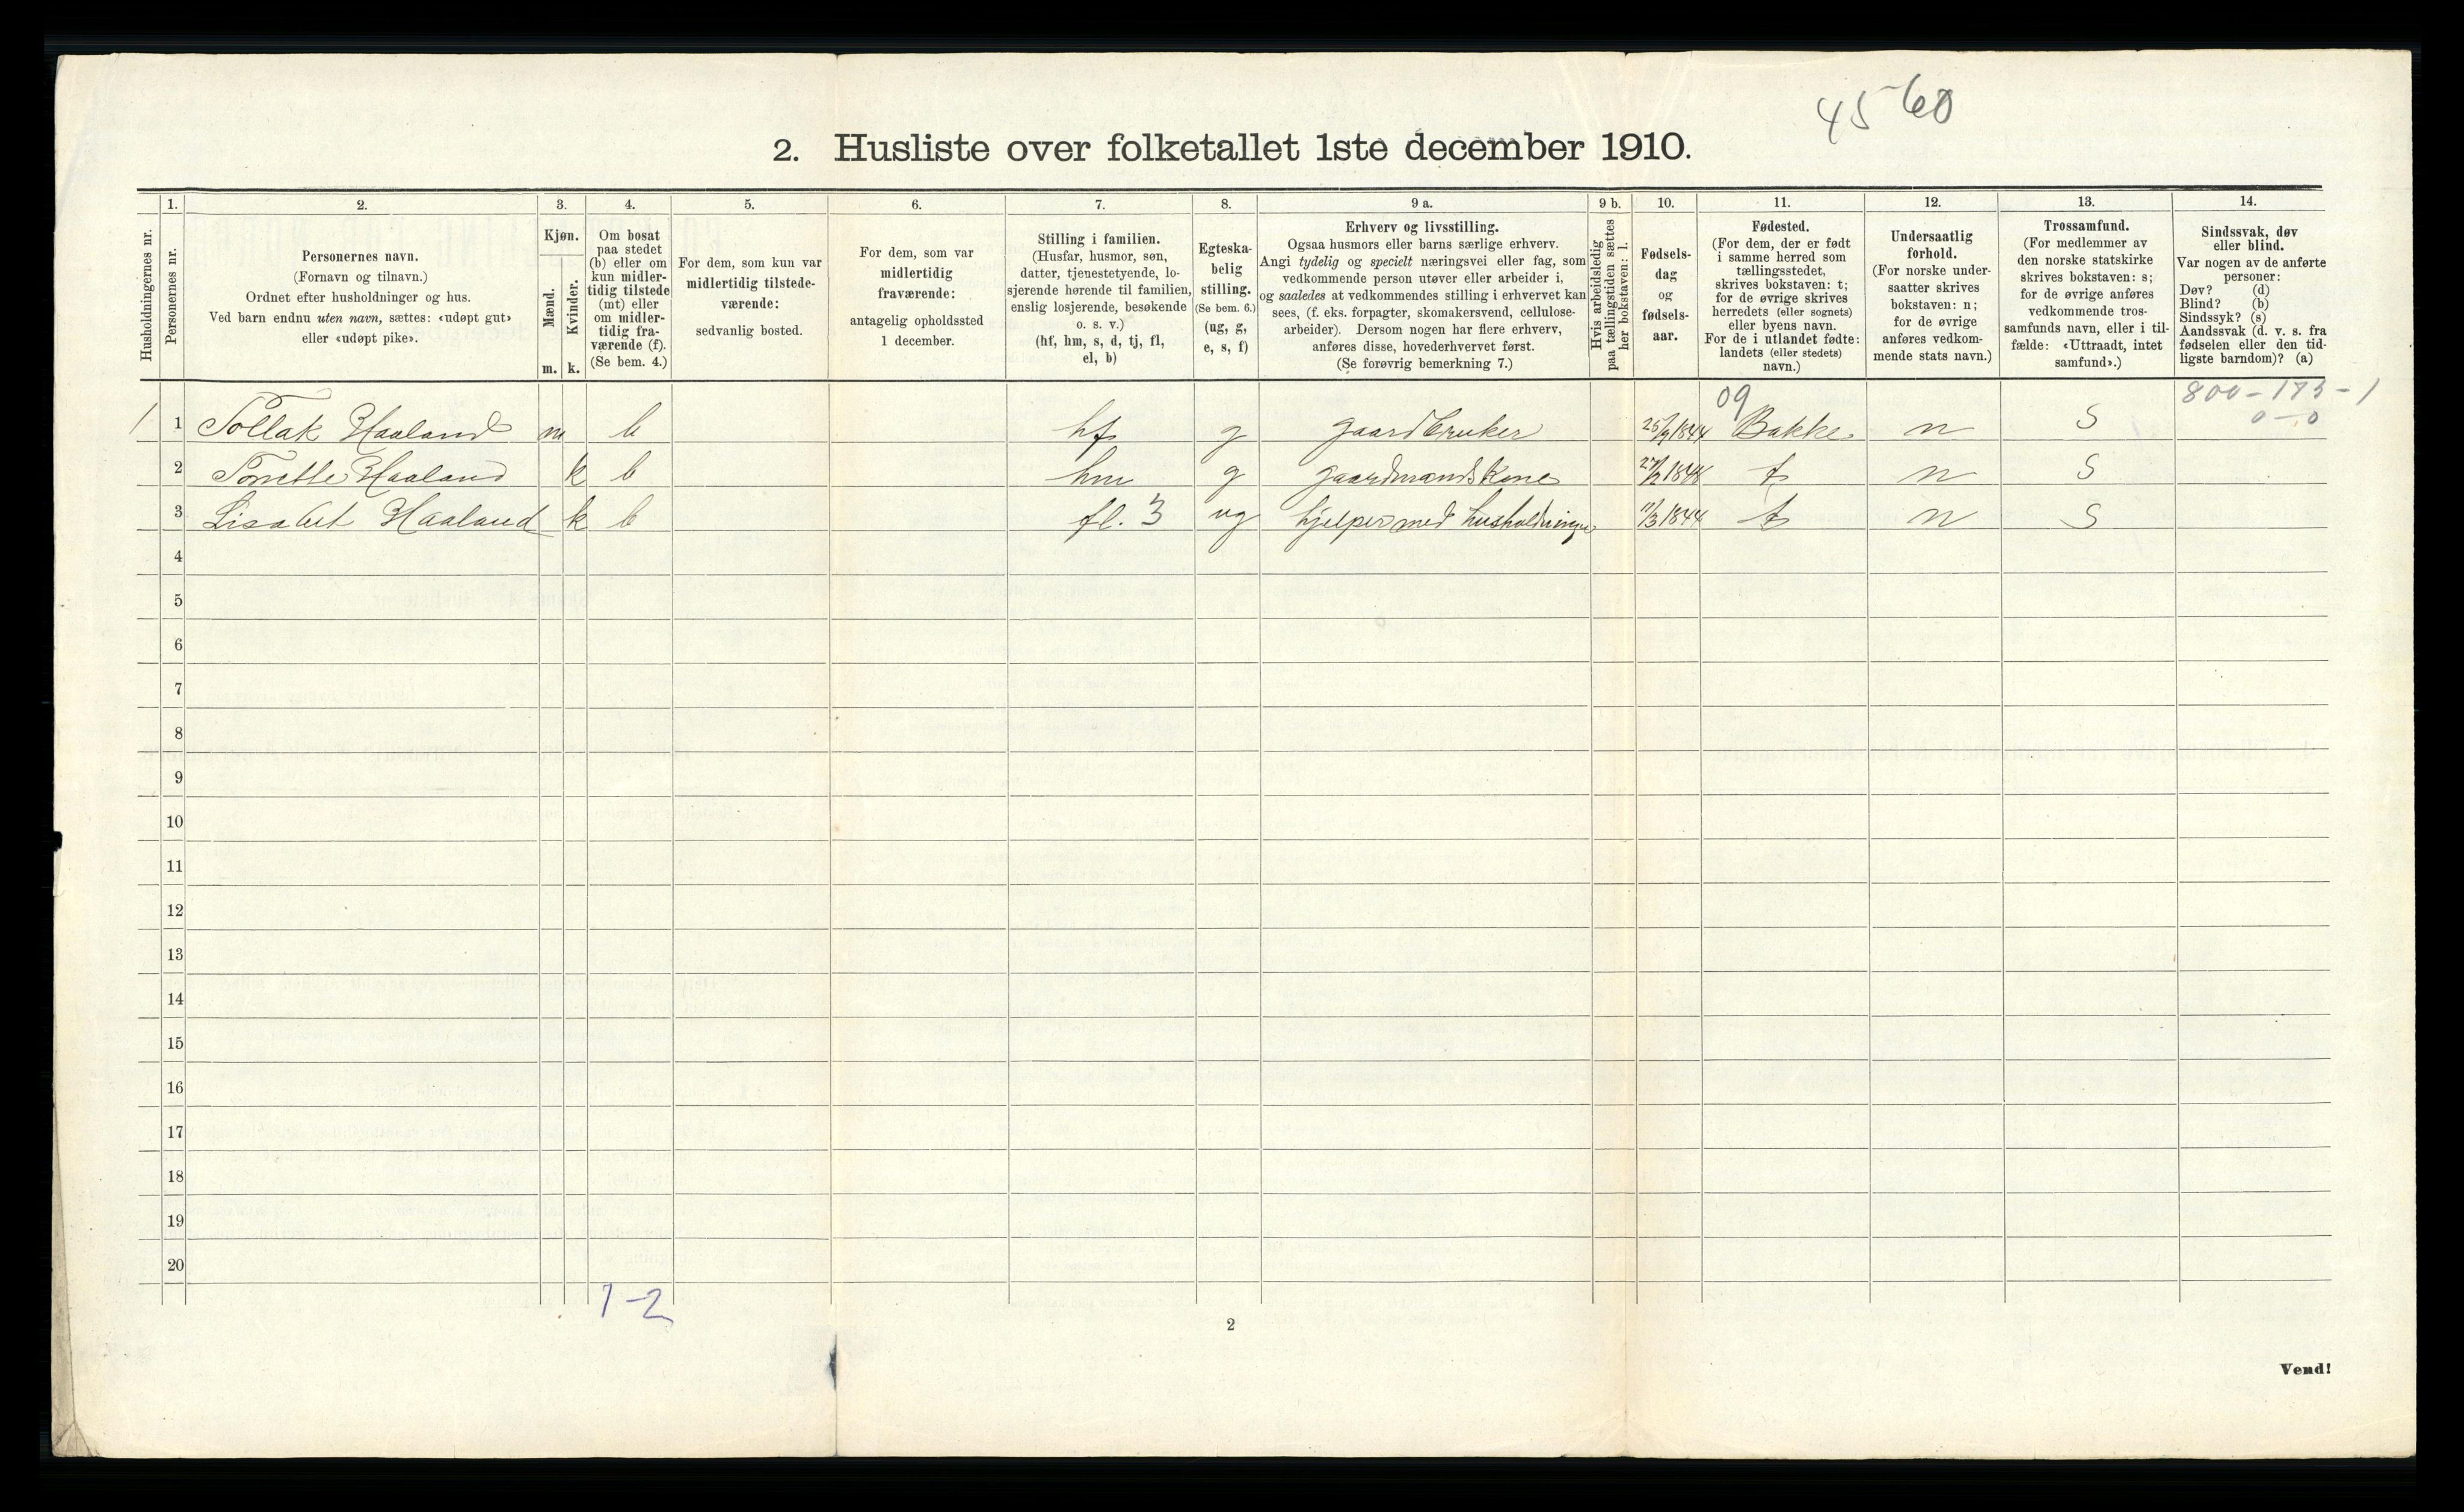 4560
2. Husliste over folketallet 1ste december 1910.
Husholdningernes nr.
1.
Personernes nr.
2.
Personernes navn.
(Fornavn og tilnavn.)
Ordnet efter husholdninger og hus.
Ved barn endnu uten navn, sættes: «udøpt gut»
eller «udøpt pike».
3.
Kjøn.
Mænd.
m.
Kvinder.
k.
4.
Om bosat
paa stedet
(b) eller om
kun midler-
tidig tilstede
(mt) eller
om midler-
tidig fra-
værende (f).
(Se bem. 4.)
5.
For dem, som kun var
midlertidig tilstede-
værende:
sedvanlig bosted.
6.
For dem, som var
midlertidig
fraværende:
antagelig opholdssted
1 december.
7.
Stilling i familien.
(Husfar, husmor, søn,
datter, tjenestetyende, lo-
sjerende hørende til familien,
enslig losjerende, besøkende
o. s. v.)
(hf, hm, s, d, tj, fl,
el, b)
8.
Egteska-
belig
stilling.
(Se bem. 6.)
(ug, g,
e, s, f)
9 a.
Erhverv og livsstilling.
Ogsaa husmors eller barns særlige erhverv.
Angi tydelig og specielt næringsvei eller fag, som
vedkommende person utøver eller arbeider i,
og saaledes at vedkommendes stilling i erhvervet kan
sees, (f. eks. forpagter, skomakersvend, cellulose-
arbeider). Dersom nogen har flere erhverv,
anføres disse, hovederhvervet først.
(Se forøvrig bemerkning 7.)
9 b.
Hvis arbeidsledig
paa tællingstiden sættes
her bokstaven: l.
10.
Fødsels-
dag
og
fødsels-
aar.
11.
Fødested.
(For dem, der er født
i samme herred som
tællingsstedet,
skrives bokstaven: t;
for de øvrige skrives
herredets (eller sognets)
eller byens navn.
For de i utlandet fødte:
landets (eller stedets)
navn.)
12.
Undersaatlig
forhold.
(For norske under-
saatter skrives
bokstaven: n;
for de øvrige
anføres vedkom-
mende stats navn.)
13.
Trossamfund.
(For medlemmer av
den norske statskirke
skrives bokstaven: s;
for de øvrige anføres
vedkommende tros-
samfunds navn, eller i til-
fælde: «Uttraadt, intet
samfund».)
14.
Sindssvak, døv
eller blind.
Var nogen av de anførte
personer:
Døv? (d)
Blind? (b)
Sindssyk? (s)
Aandssvak (d. v. s. fra
fødselen eller den tid-
ligste barndom)? (a)
09
800-173-1
0-0
1 1 Tollak Haaland m b hf g gaardbruker 1844 Bakke n S
2 Haaland k b hm g gaardmandskone t n S
3 Lisabet Haaland k b fl. 3 ug hjelper med husholdningen 11/3 1844 t n S
4
5
6
7
8
9
10
11
12
13
14
15
16
17
18
19
20
1-2
2
Vend!